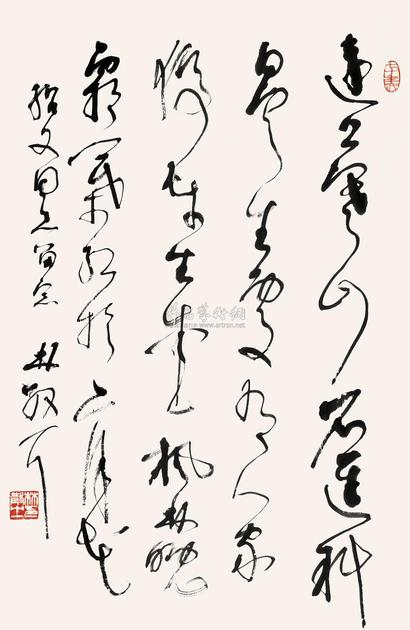 遠上寒山石徑斜
白雲生處有人家
停車坐愛楓林晚
霜葉紅於二月花
文同志留念 林散耳
www.artron.net